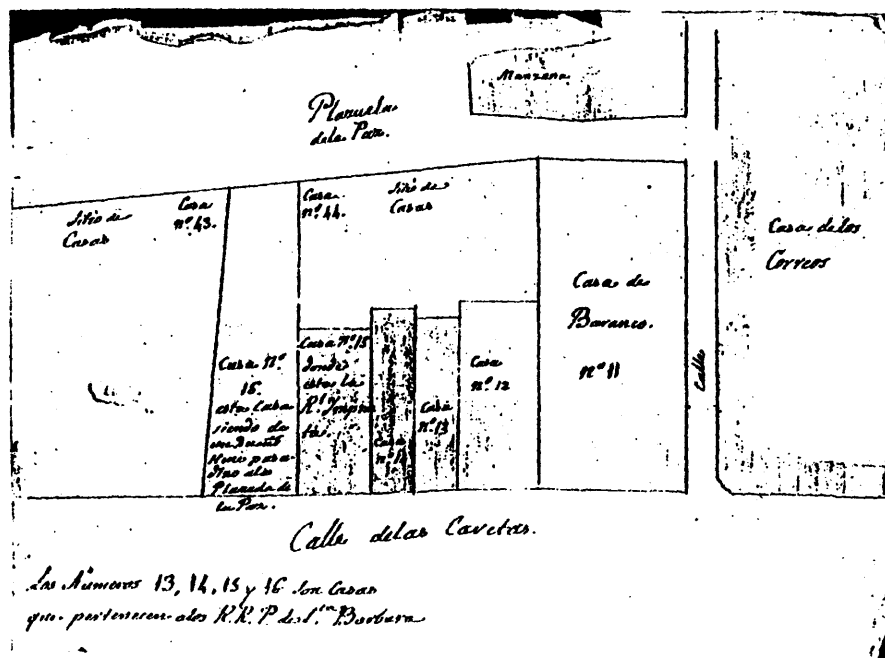 Manzana
Plazuela
de la Paz.
Sitio de
Casas
Casa
nº 43.
Casa
nº 44.
Sitio de
Casas
Casa de los
Correos
Casa de
Baranco.
nº 11
Calle
Casa Nº
16.
esta Casa
siendo de
un Dueño
tiene paso
de la
Paz.
Casa Nº 15
donde
esta la
Rl. Ympren
ta.
Casa
nº 14
Casa
nº 13
Casa
nº 12
Calle de las Carretas.
Los Números 13, 14, 15 y 16 son Casas
que pertenecen a los R.R. P. de Sta. Barbara